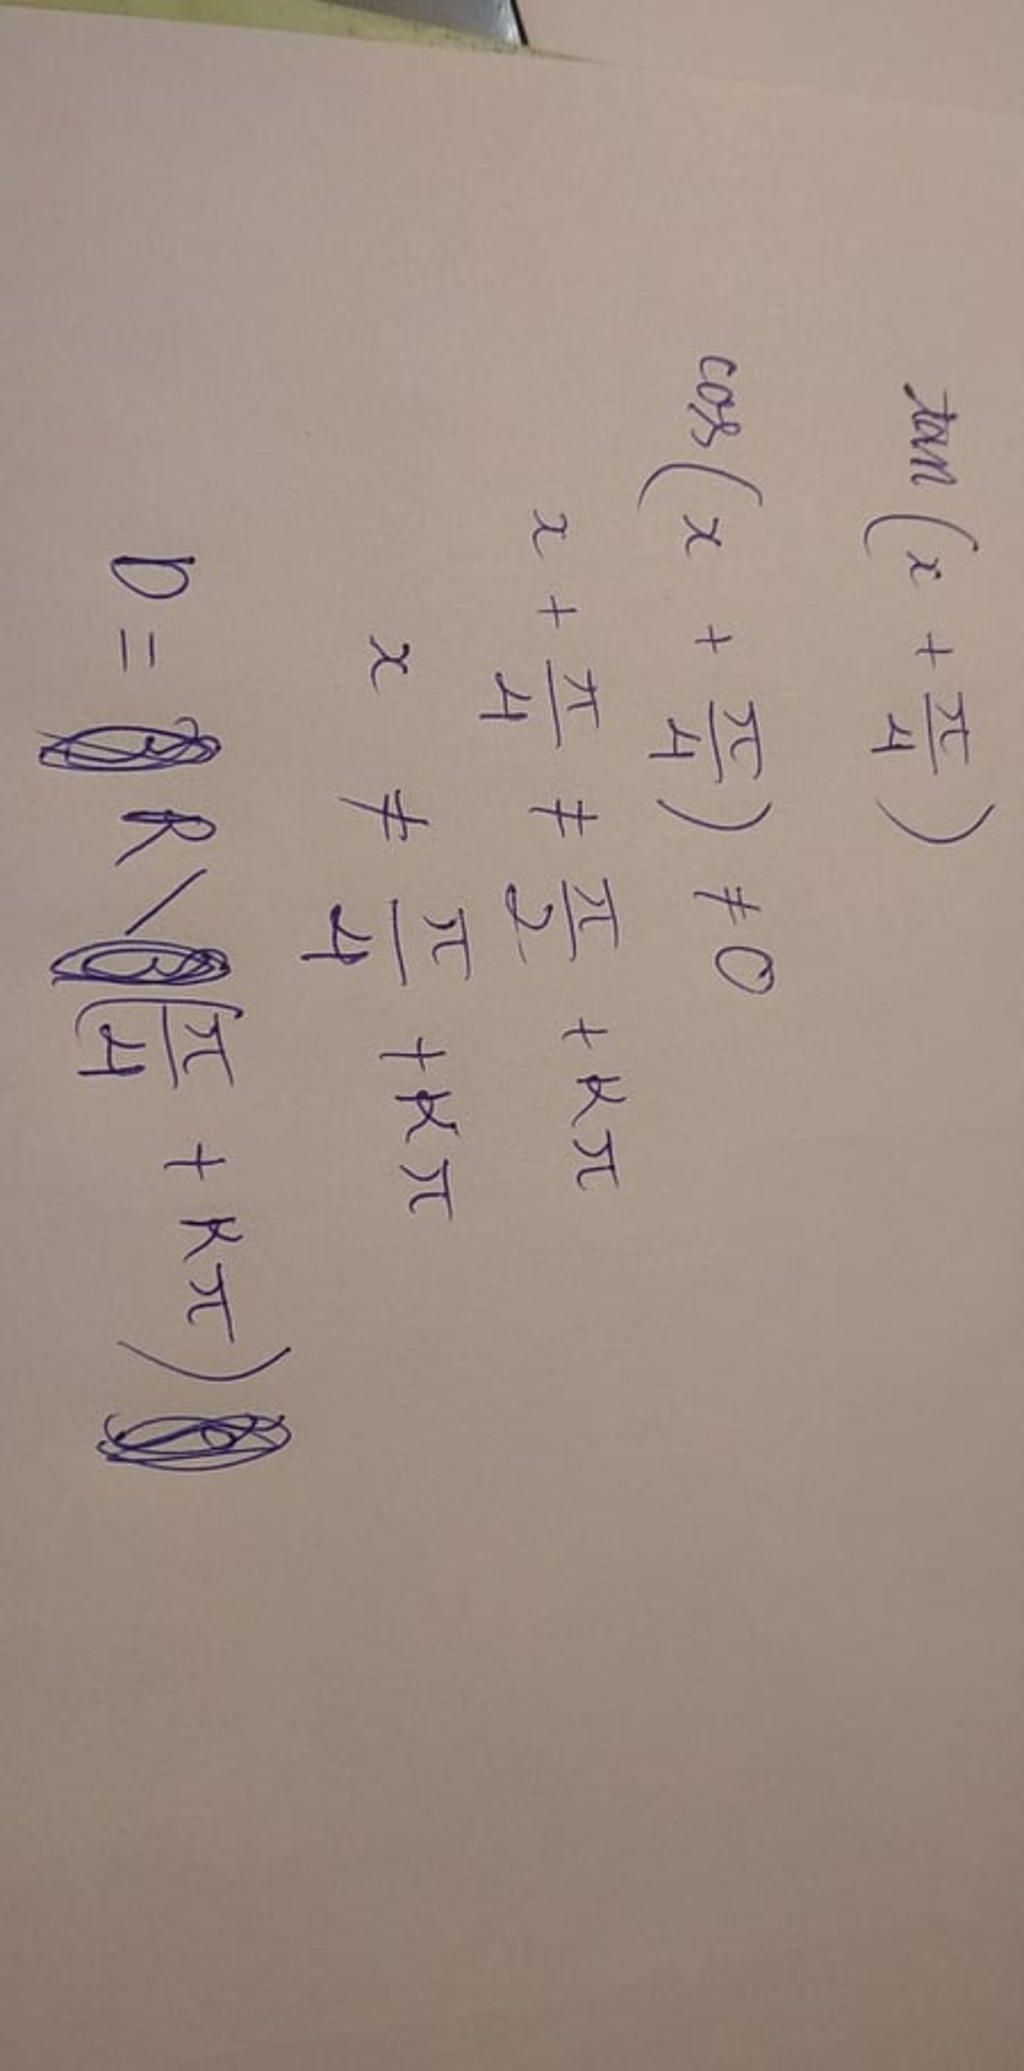 tan (x + π/4)
cos (x + π/4) ≠ 0
x + π/4 ≠ π/2 + kπ
x ≠ π/4 + kπ
D = R \ (π/4 + kπ)